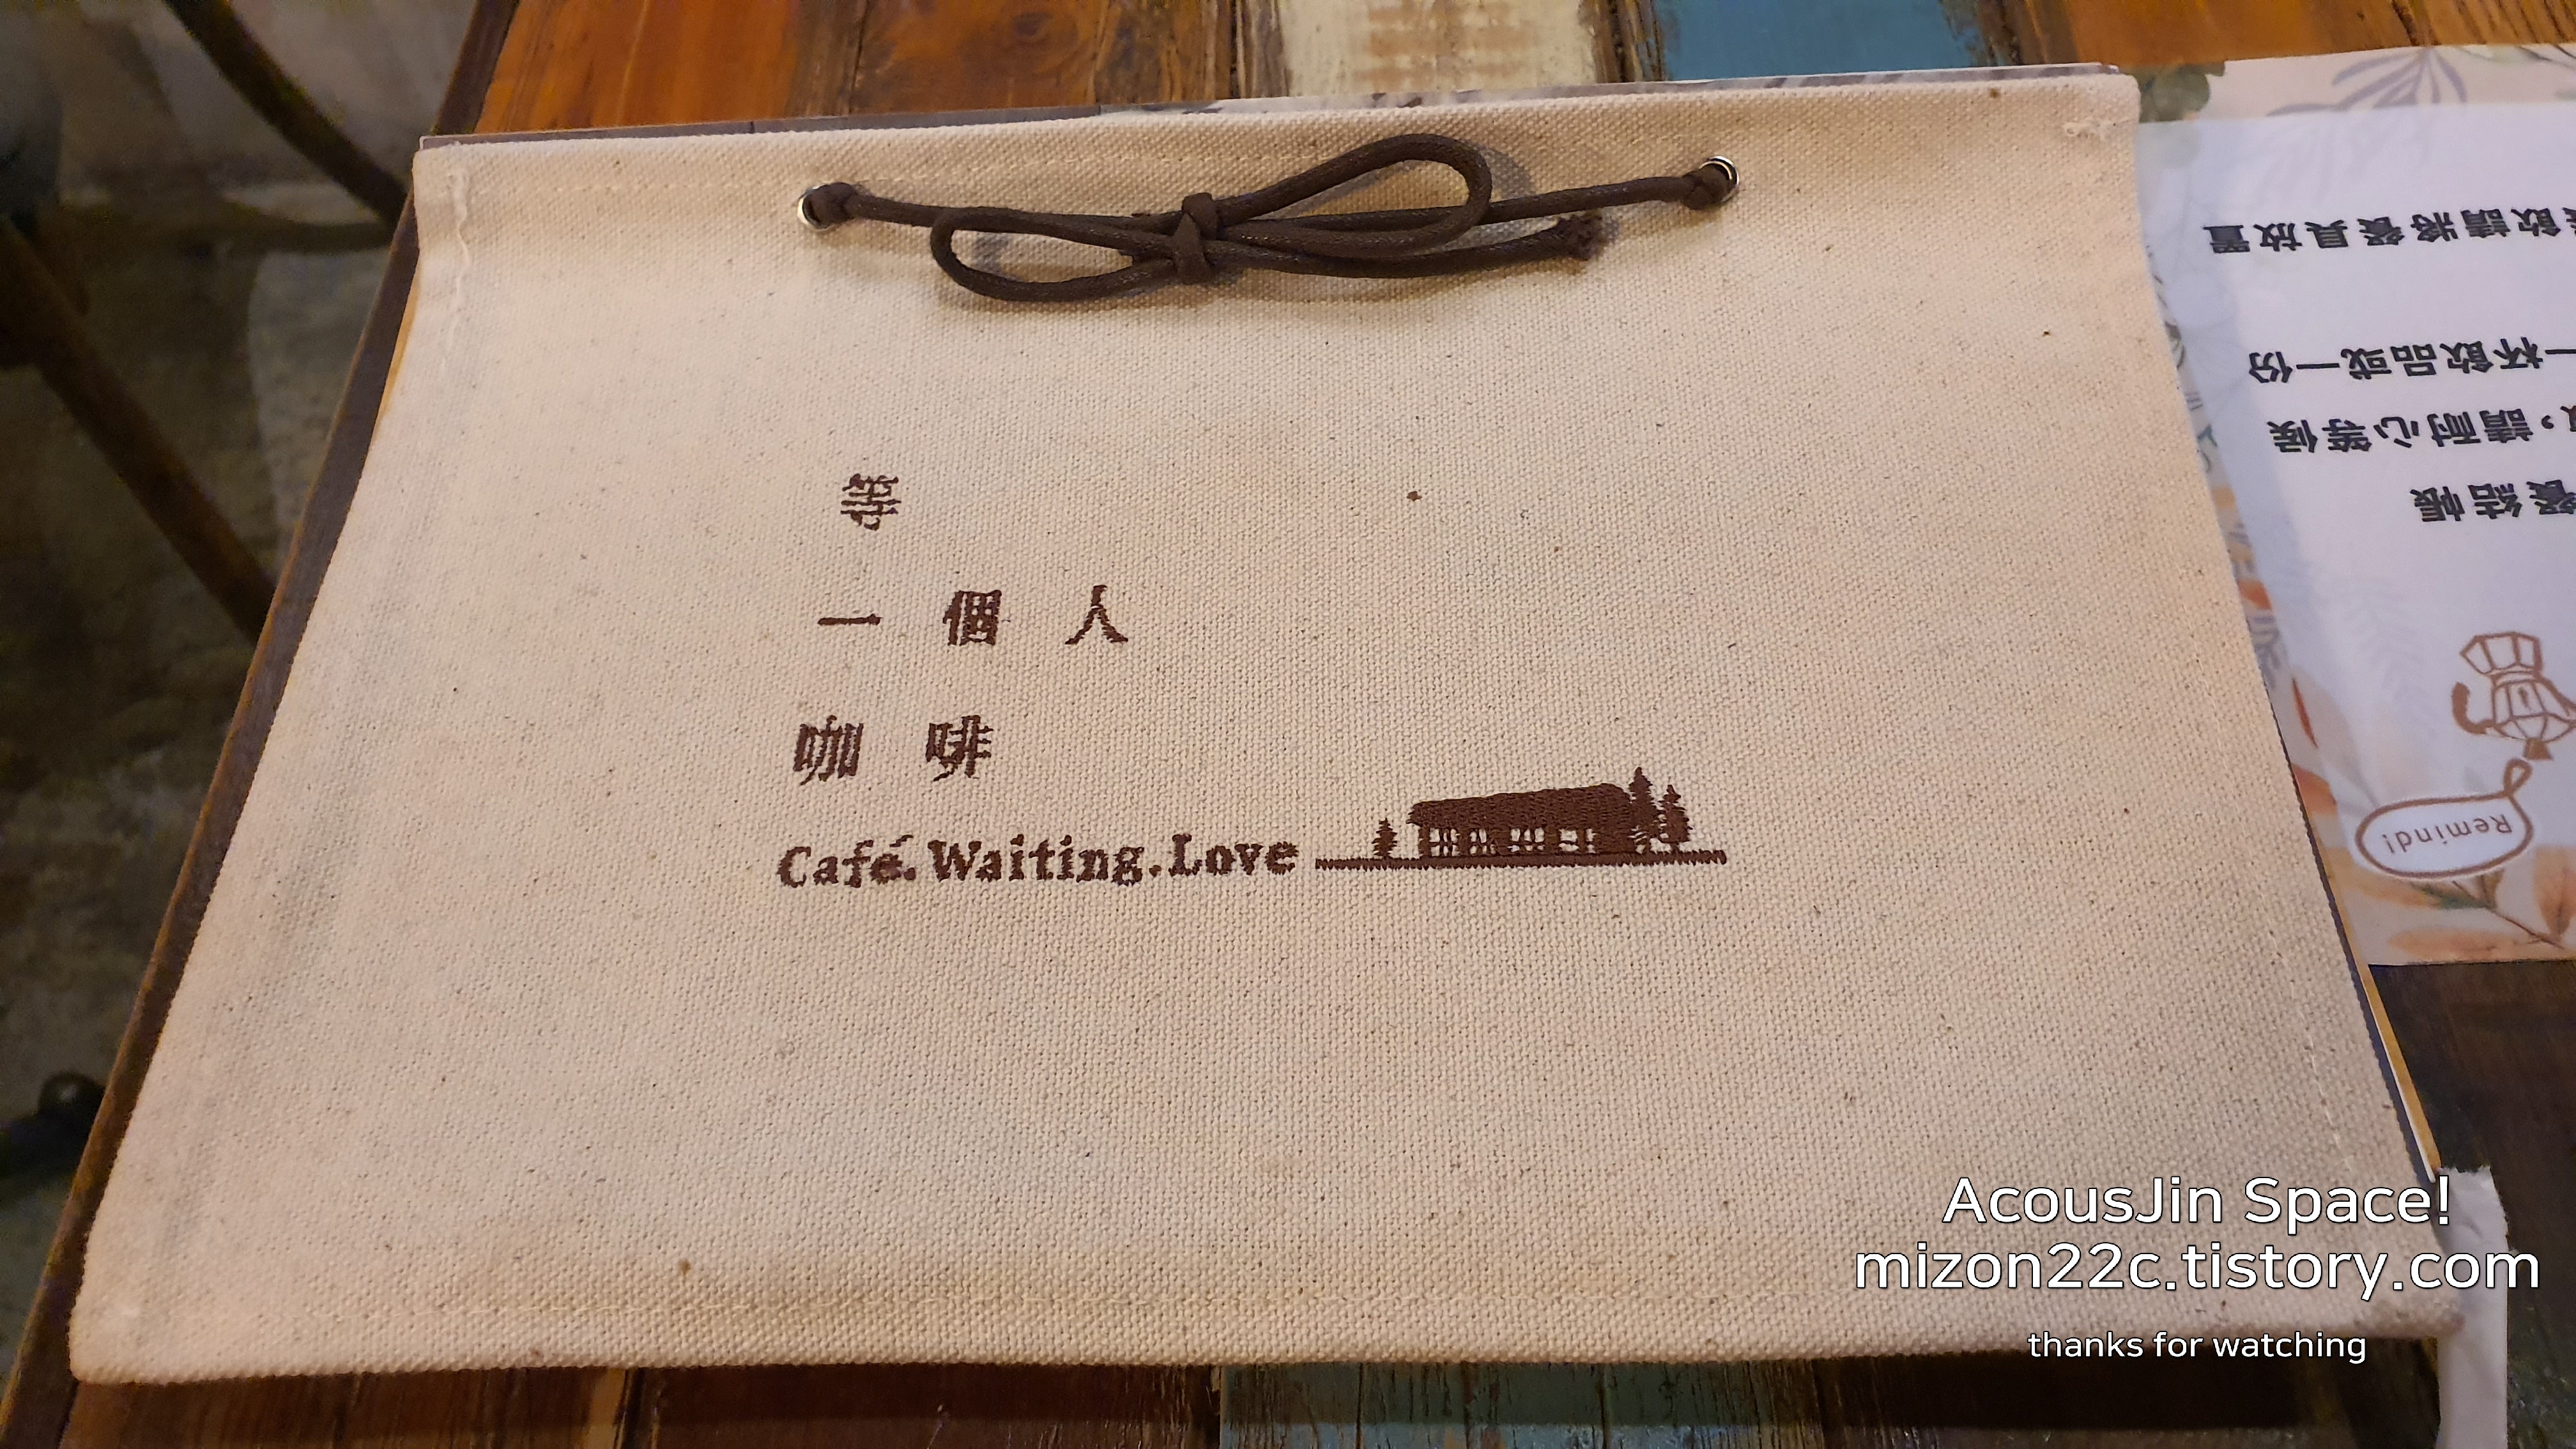 等
一個人
咖啡
Café.Waiting.Love
飲請將餐具放置
一杯飲品或一份
，請耐心等候
餐結帳
Remind!
AcousJin Space!
mizon22c.tistory.com
thanks for watching